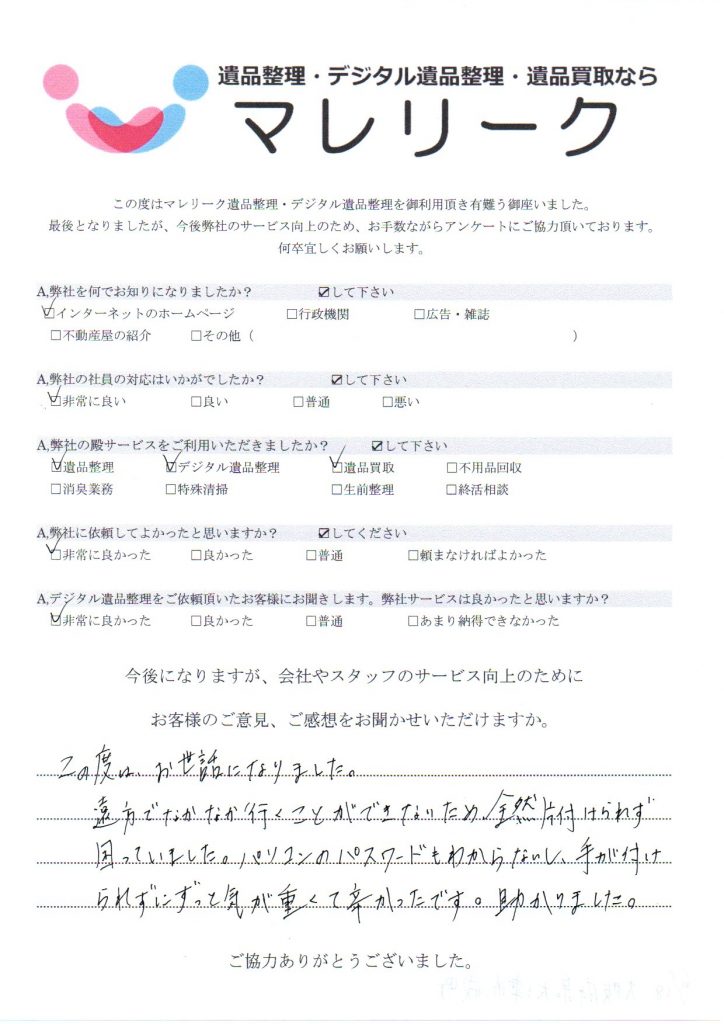 遺品整理・デジタル遺品整理・遺品買取なら
マレリーク
この度はマレリーク遺品整理・デジタル遺品整理を御利用頂き有難う御座いました。
最後となりましたが、今後弊社のサービス向上のため、お手数ながらアンケートにご協力頂いております。
何卒宜しくお願いします。
A,弊社を何でお知りになりましたか？ ☑して下さい
☑インターネットのホームページ □行政機関 □広告・雑誌
□不動産屋の紹介 □その他（ ）
A,弊社の社員の対応はいかがでしたか？ ☑して下さい
☑非常に良い □良い □普通 □悪い
A,弊社の殿サービスをご利用いただきましたか？ ☑して下さい
☑遺品整理 ☑デジタル遺品整理 ☑遺品買取 □不用品回収
□消臭業務 □特殊清掃 □生前整理 □終活相談
A,弊社に依頼してよかったと思いますか？ ☑してください
☑非常に良かった □良かった □普通 □頼まなければよかった
A,デジタル遺品整理をご依頼頂いたお客様にお聞きします。弊社サービスは良かったと思いますか？
☑非常に良かった □良かった □普通 □あまり納得できなかった
今後になりますが、会社やスタッフのサービス向上のために
お客様のご意見、ご感想をお聞かせいただけますか。
この度は、お世話になりました。
遠方でなかなか行くことができないため、全然片付けられず
困っていました。パソコンのパスワードもわからないし、手が付け
られずにずっと気が重くて辛かったです。助かりました。
ご協力ありがとうございました。